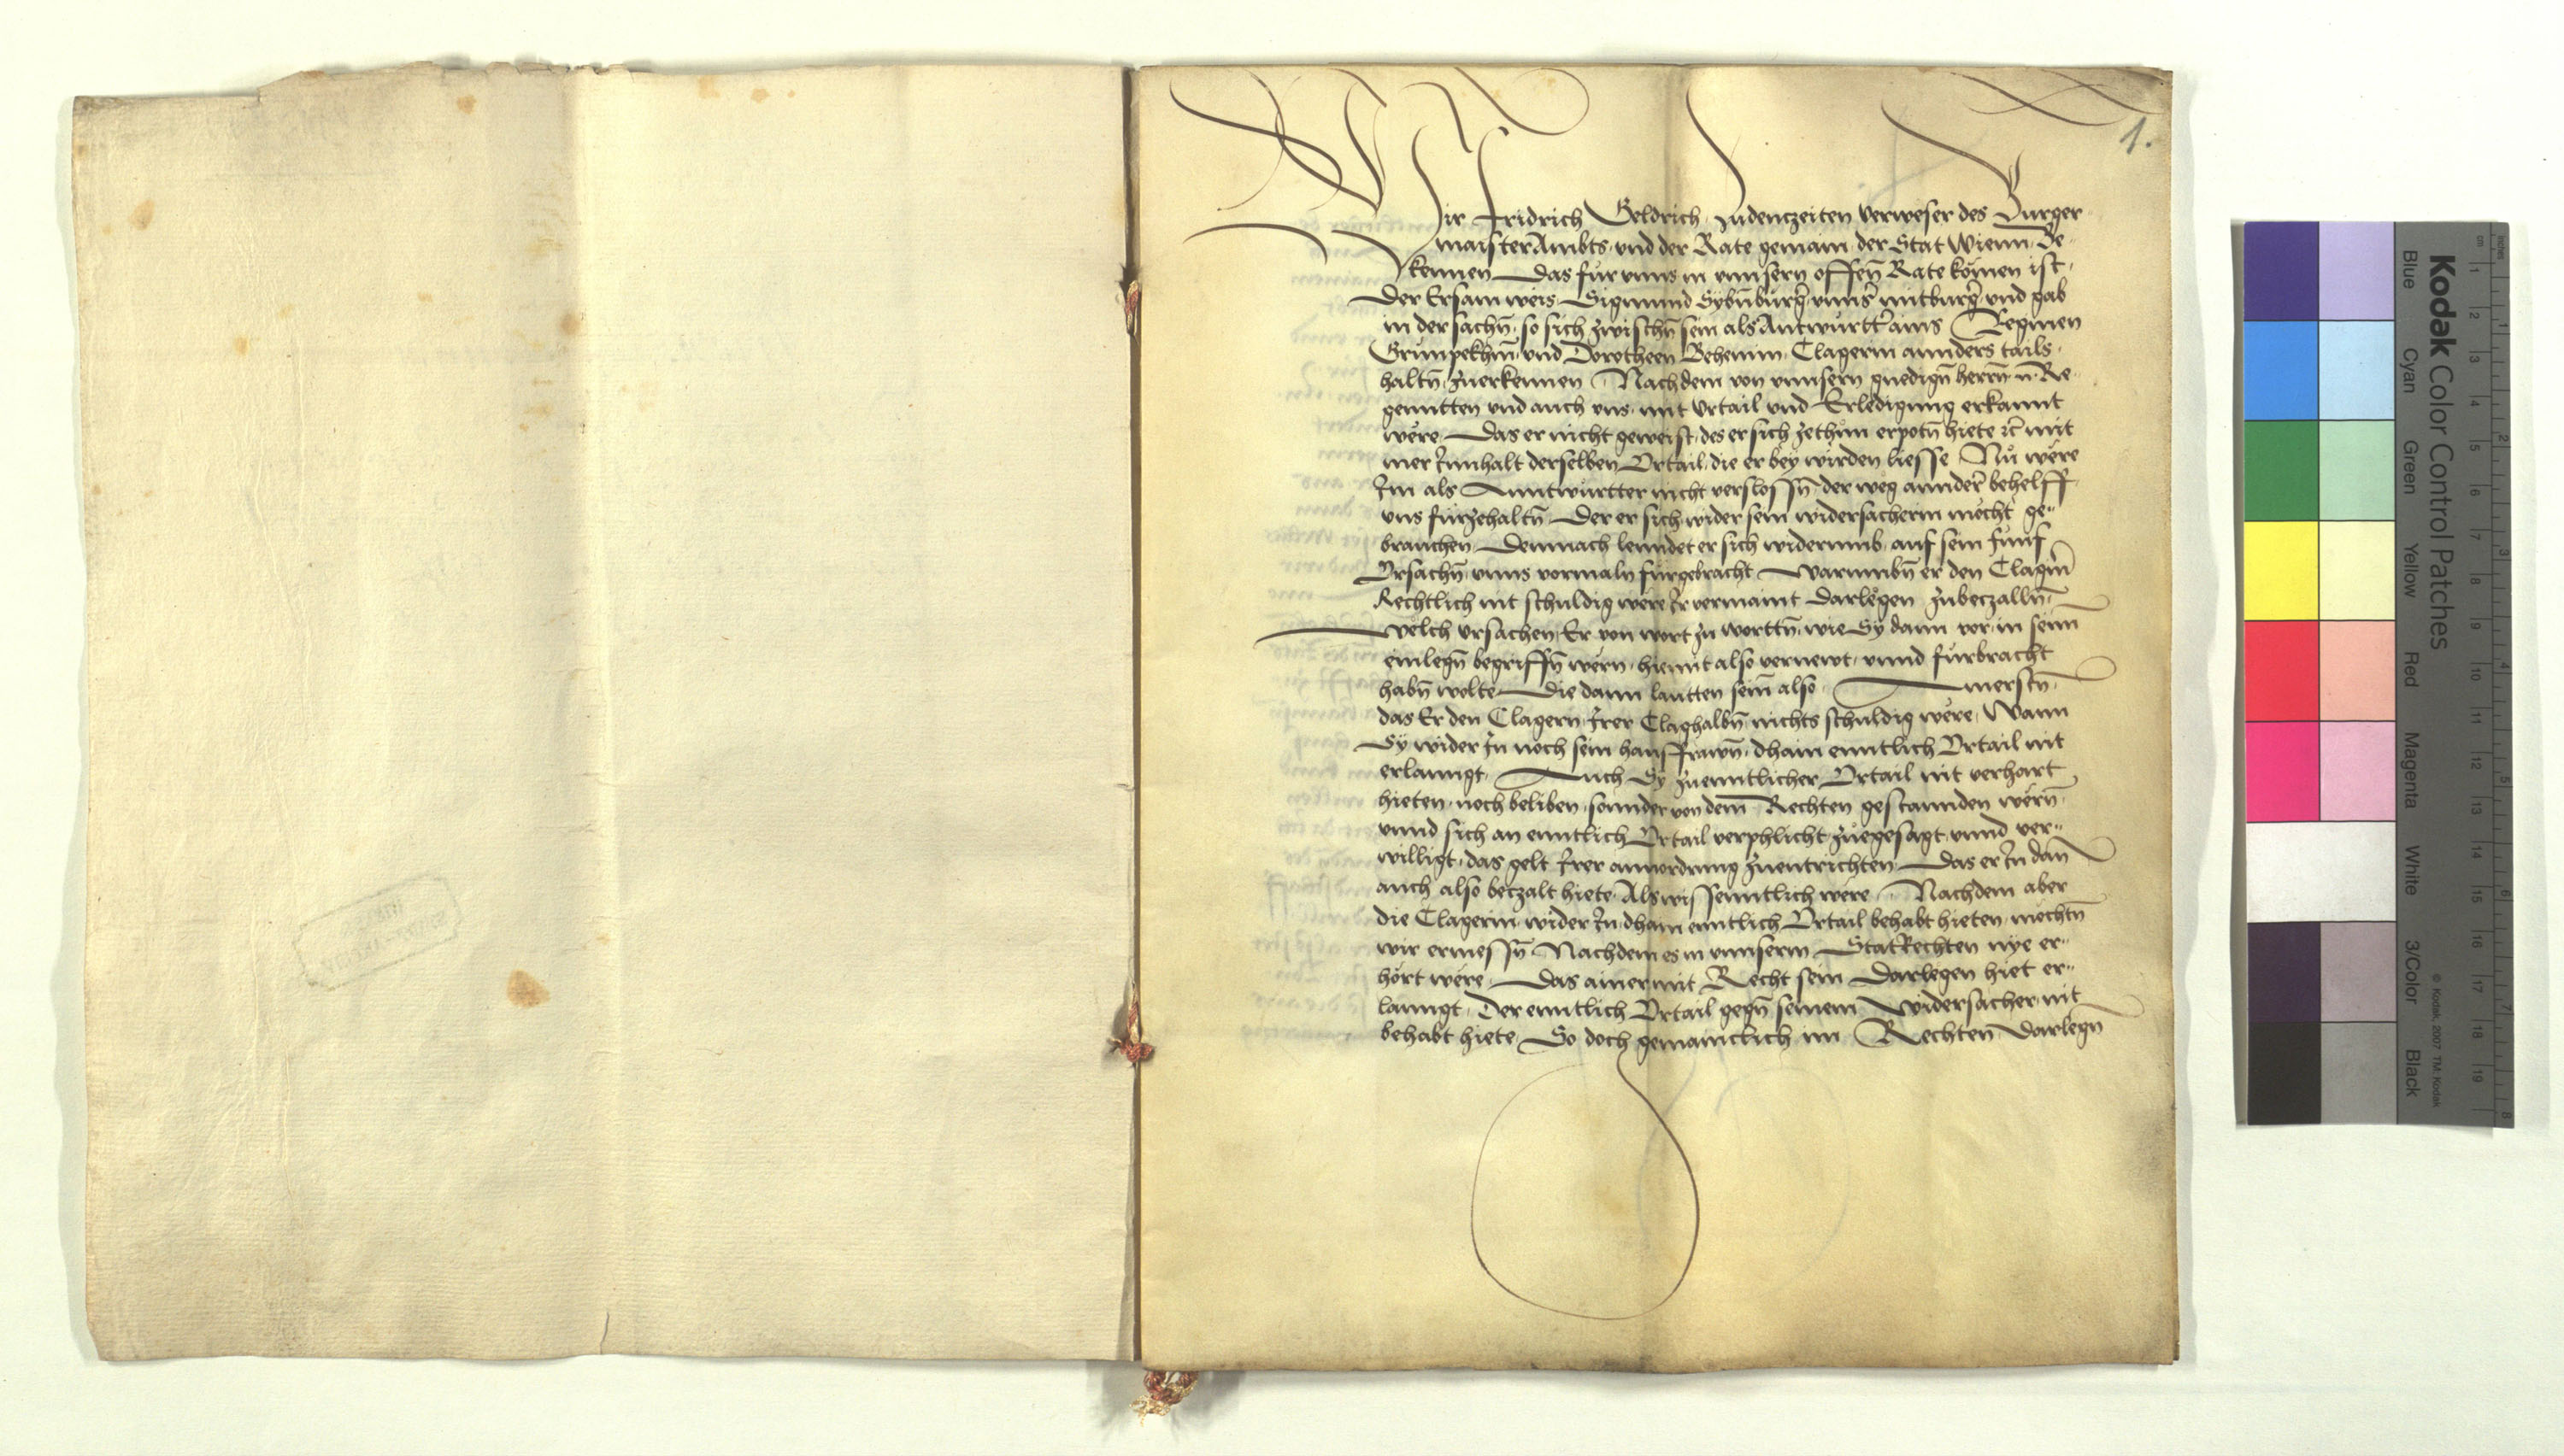 1.
Wir Fridrich Geldrich zudenczeiten verweser des Burger
maister Ambts und der Rate gemain der Stat Wienn Be-
kennen Das für unns in unnsern offen̄ Rate komen ist
Der Ersam weis Sigmund Sybn̄burḡ unns̄ mitburḡ und gab
in der sachn̄ so sich zwischn̄ sein als Antwurtt̄ ains
und Dorotheen Behemin Clagerin annders tails
haltn̄ zuerkennen Nachdem von unnsern gnedign̄ herrn̄ n̄ Re-
gentten und auch uns mit Urtail und Erledigung erkannt
were Das er nicht geweist des er sich zethun erpotn̄ hiete ꝛc̄ mit
mer Innhalt derselben Urtail die er bey wirden liesse Nu were
Im als Anntwurtter nicht verslossn̄ der weg annder̄ behelff
uns fürzehaltn̄ Der er sich wider sein widersacherin mecht ge-
brauchen Demnach lenndet er sich widerumb auf sein fünf
Ursachn̄ unns vormaln fürgebracht warumbn̄ er den Clagern̄
Rechtlich nit schuldig were Ir vermaint Darlegen zubeczalln̄
welch ursachen Er von wort zu worttn̄ wie Sy dann vor in seim
einlegn̄ begriffn̄ wern hiemit also vernewt unnd fürbracht
habn̄ wolte Die dann lautten sein̄ also Zumerstn̄
das Er den Clagern Irer Claghalbn̄ nichts schuldig were Wann
Sy wider In noch sein hausfrawn̄ dhain enntlich Urtail nit
erlanngt Auch Sy zuenntlicher Urtail nit verhart
hieten noch beliben sonnder von dem̄ Rechten gestannden wern̄
unnd sich an enntlich Urtail verphlicht zuegesagt unnd ver-
willigt das gelt Irer anvordrung zuentrichten Das er In dan̄
auch also beczalt hiete Als wissenntlich were Nachdem aber
die Clagerin wider In dhain enntlich Urtail behabt hieten mechtn̄
wir ermessn̄ Nachdem es in unnserm StatRechten nye er-
hört were Das ainer mit Recht sein Darlegen hiet er-
lanngt Der enntlich Urtail gegn̄ seinem widersacher nit
behabt hiete So doch gemaincklich im Rechten Darlegn
Kodak Color Control Patches
Blue Cyan Green Yellow Red Magenta White 3/Color Black
© Kodak, 2007 TM: Kodak
cm 1 2 3 4 5 6 7 8 9 10 11 12 13 14 15 16 17 18 19
inches 1 2 3 4 5 6 7 8